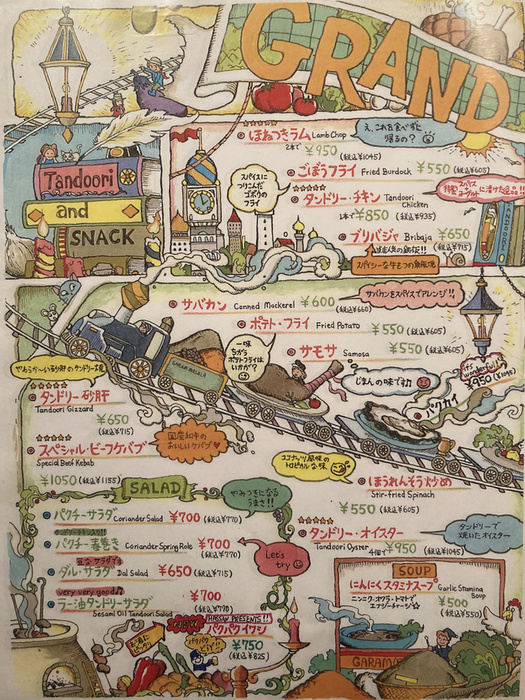 GRAND
Tandoori
and
SNACK
ほねつきラム Lamb Chop
2本で ¥950 (税込¥1045)
え、これを食べずに
帰るの?
ごぼうフライ Fried Burdock ¥550 (税込¥605)
スパイスに
つけこんだ
ゴボウの
フライ
タンドリー・チキン Tandoori
Chicken
1本で¥850 (税込¥935)
ブリバジャ Bribaja ¥650
(税込¥715)
スパイシーな牛もつの鉄板焼
サバカン Canned Mackerel ¥600 (税込¥660)
サバカンをスパイスでアレンジ!!
ポテト・フライ Fried Potato ¥550 (税込¥605)
一味
ちがう
ポテトフライは
いかが?
サモサ Samosa ¥550 (税込¥605)
じまんの味です
GARAM MASALA
やわらか〜い砂肝のタンドリー焼
タンドリー砂肝
Tandoori Gizzard
¥650
(税込¥715)
it's
wonderful!!
¥950 (¥1045)
パクカイ
スペシャル・ビーフケバブ
Special Beef Kebab
¥1050 (税込¥1155)
国産和牛の
おいしいケバブ
ココナッツ風味の
トロピカルな味
ほうれんそう炒め
Stir-fried Spinach
¥550 (税込¥605)
SALAD
やみつきになる
うまさ!!
パクチーサラダ Coriander Salad ¥700 (税込¥770)
パクチー春巻き Coriander Spring Role ¥700
(税込¥770)
Let's
try
ダル・サラダ Dal Salad ¥650 (税込¥715)
very very good
ラー油タンドリーサラダ ¥700
(税込¥770)
Sesami Oil Tandoori Salad
タンドリー・オイスター
Tandoori Oyster ¥950 (税込¥1045)
タンドリーで
焼いたオイスター
HASSAN PRESENTS!!
パクパクイワシ
¥750
(税込¥825)
SOUP
にんにくスタミナスープ Garlic Stamina
Soup
ニンニク・オクラ・トマトで
エナジーチャージ☆
¥500
(税込¥550)
GARAM